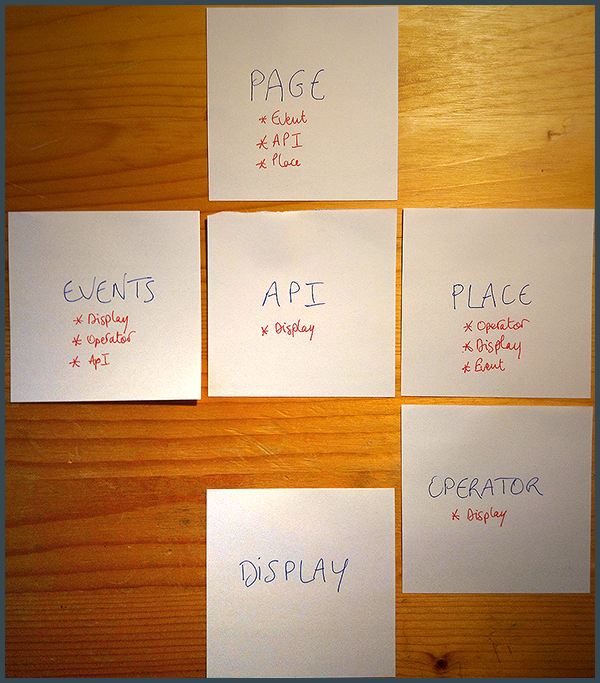 PAGE
* Event
* API
* Place
EVENTS
* Display
* Operator
* ApI
API
* Display
PLACE
* Operator
* Display
* Event
OPERATOR
* Display
DiSPLAY